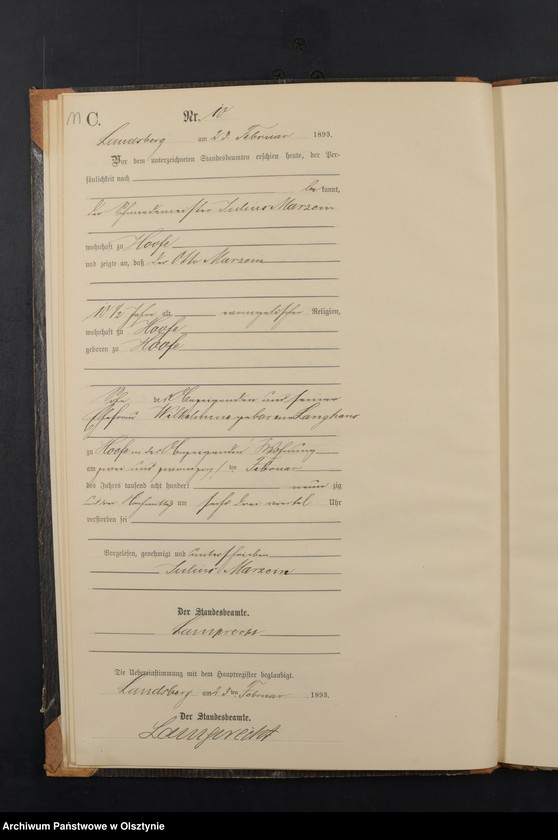 C.
Nr. 10
Landsberg am 23. Februar 1893.
Vor dem unterzeichneten Standesbeamten erschien heute, der Per-
sönlichkeit nach
be kannt,
der Schmiedemeister Julius Marzein
wohnhaft zu Hoofe
und zeigte an, daß der Otto Marzein
10 1/2 Jahre alt, evangelischer Religion,
wohnhaft zu Hoofe
geboren zu Hoofe
Sohn des Anzeigenden und seiner
Ehefrau Wilhelmine geborene Langhans
zu Hoofe in des Anzeigenden Wohnung
am zwei und zwanzigsten Februar
des Jahres tausend acht hundert neun zig
und drei Nachmittags um sechs drei viertel Uhr
verstorben sei
Vorgelesen, genehmigt und unterschrieben
Julius Marzein
Der Standesbeamte.
Lamprecht
Die Uebereinstimmung mit dem Hauptregister beglaubigt.
Landsberg am 23ten Februar 1893.
Der Standesbeamte.
Lamprecht
Archiwum Państwowe w Olsztynie